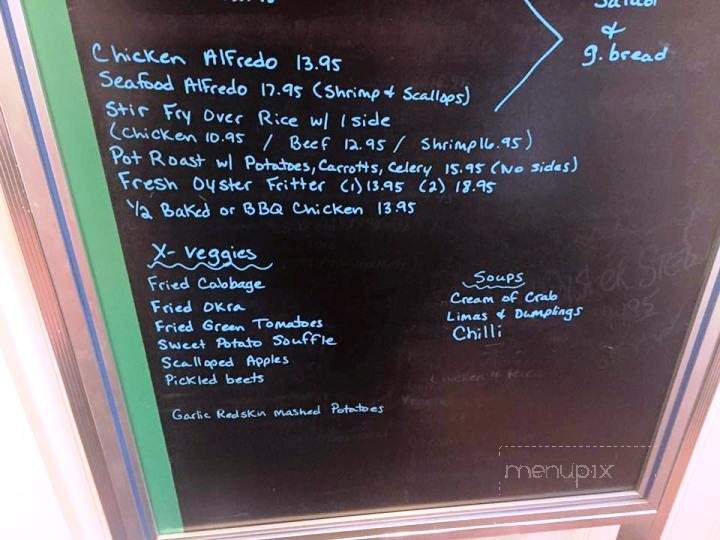 Salad
&
g.bread
Chicken Alfredo 13.95
Seafood Alfredo 17.95 (Shrimp & Scallops)
Stir Fry Over Rice w/ 1 side
(Chicken 10.95 / Beef 12.95 / Shrimp 16.95)
Pot Roast w/ Potatoes, Carrotts, Celery 15.95 (No sides)
Fresh Oyster Fritter (1) 13.95 (2) 18.95
1/2 Baked or BBQ Chicken 13.95
X-Veggies
Fried Cabbage
Fried Okra
Fried Green Tomatoes
Sweet Potato Souffle
Scalloped Apples
Pickled beets
Garlic Redskin mashed Potatoes
Soups
Cream of Crab
Limas & Dumplings
Chilli
menupix